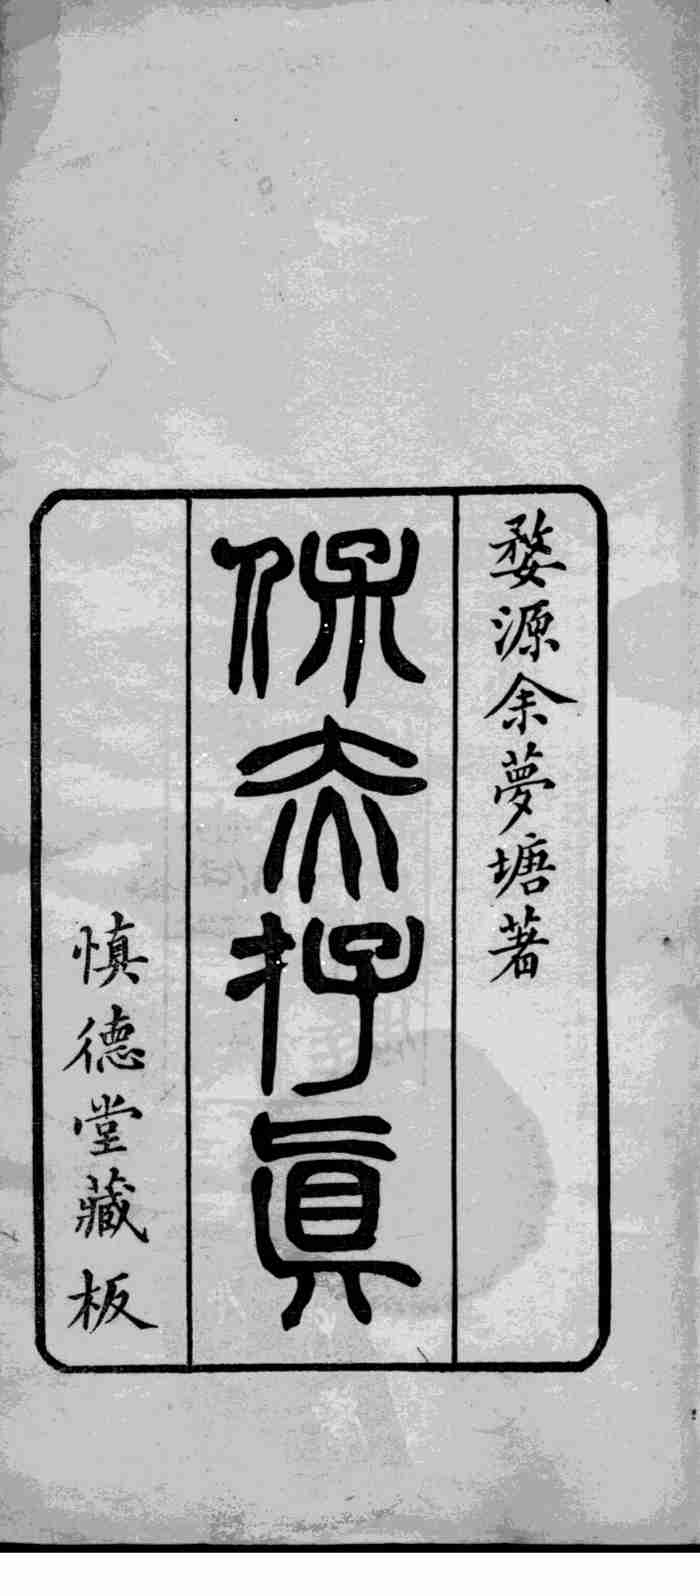 婺源余夢塘著
保赤存眞
慎德堂藏板